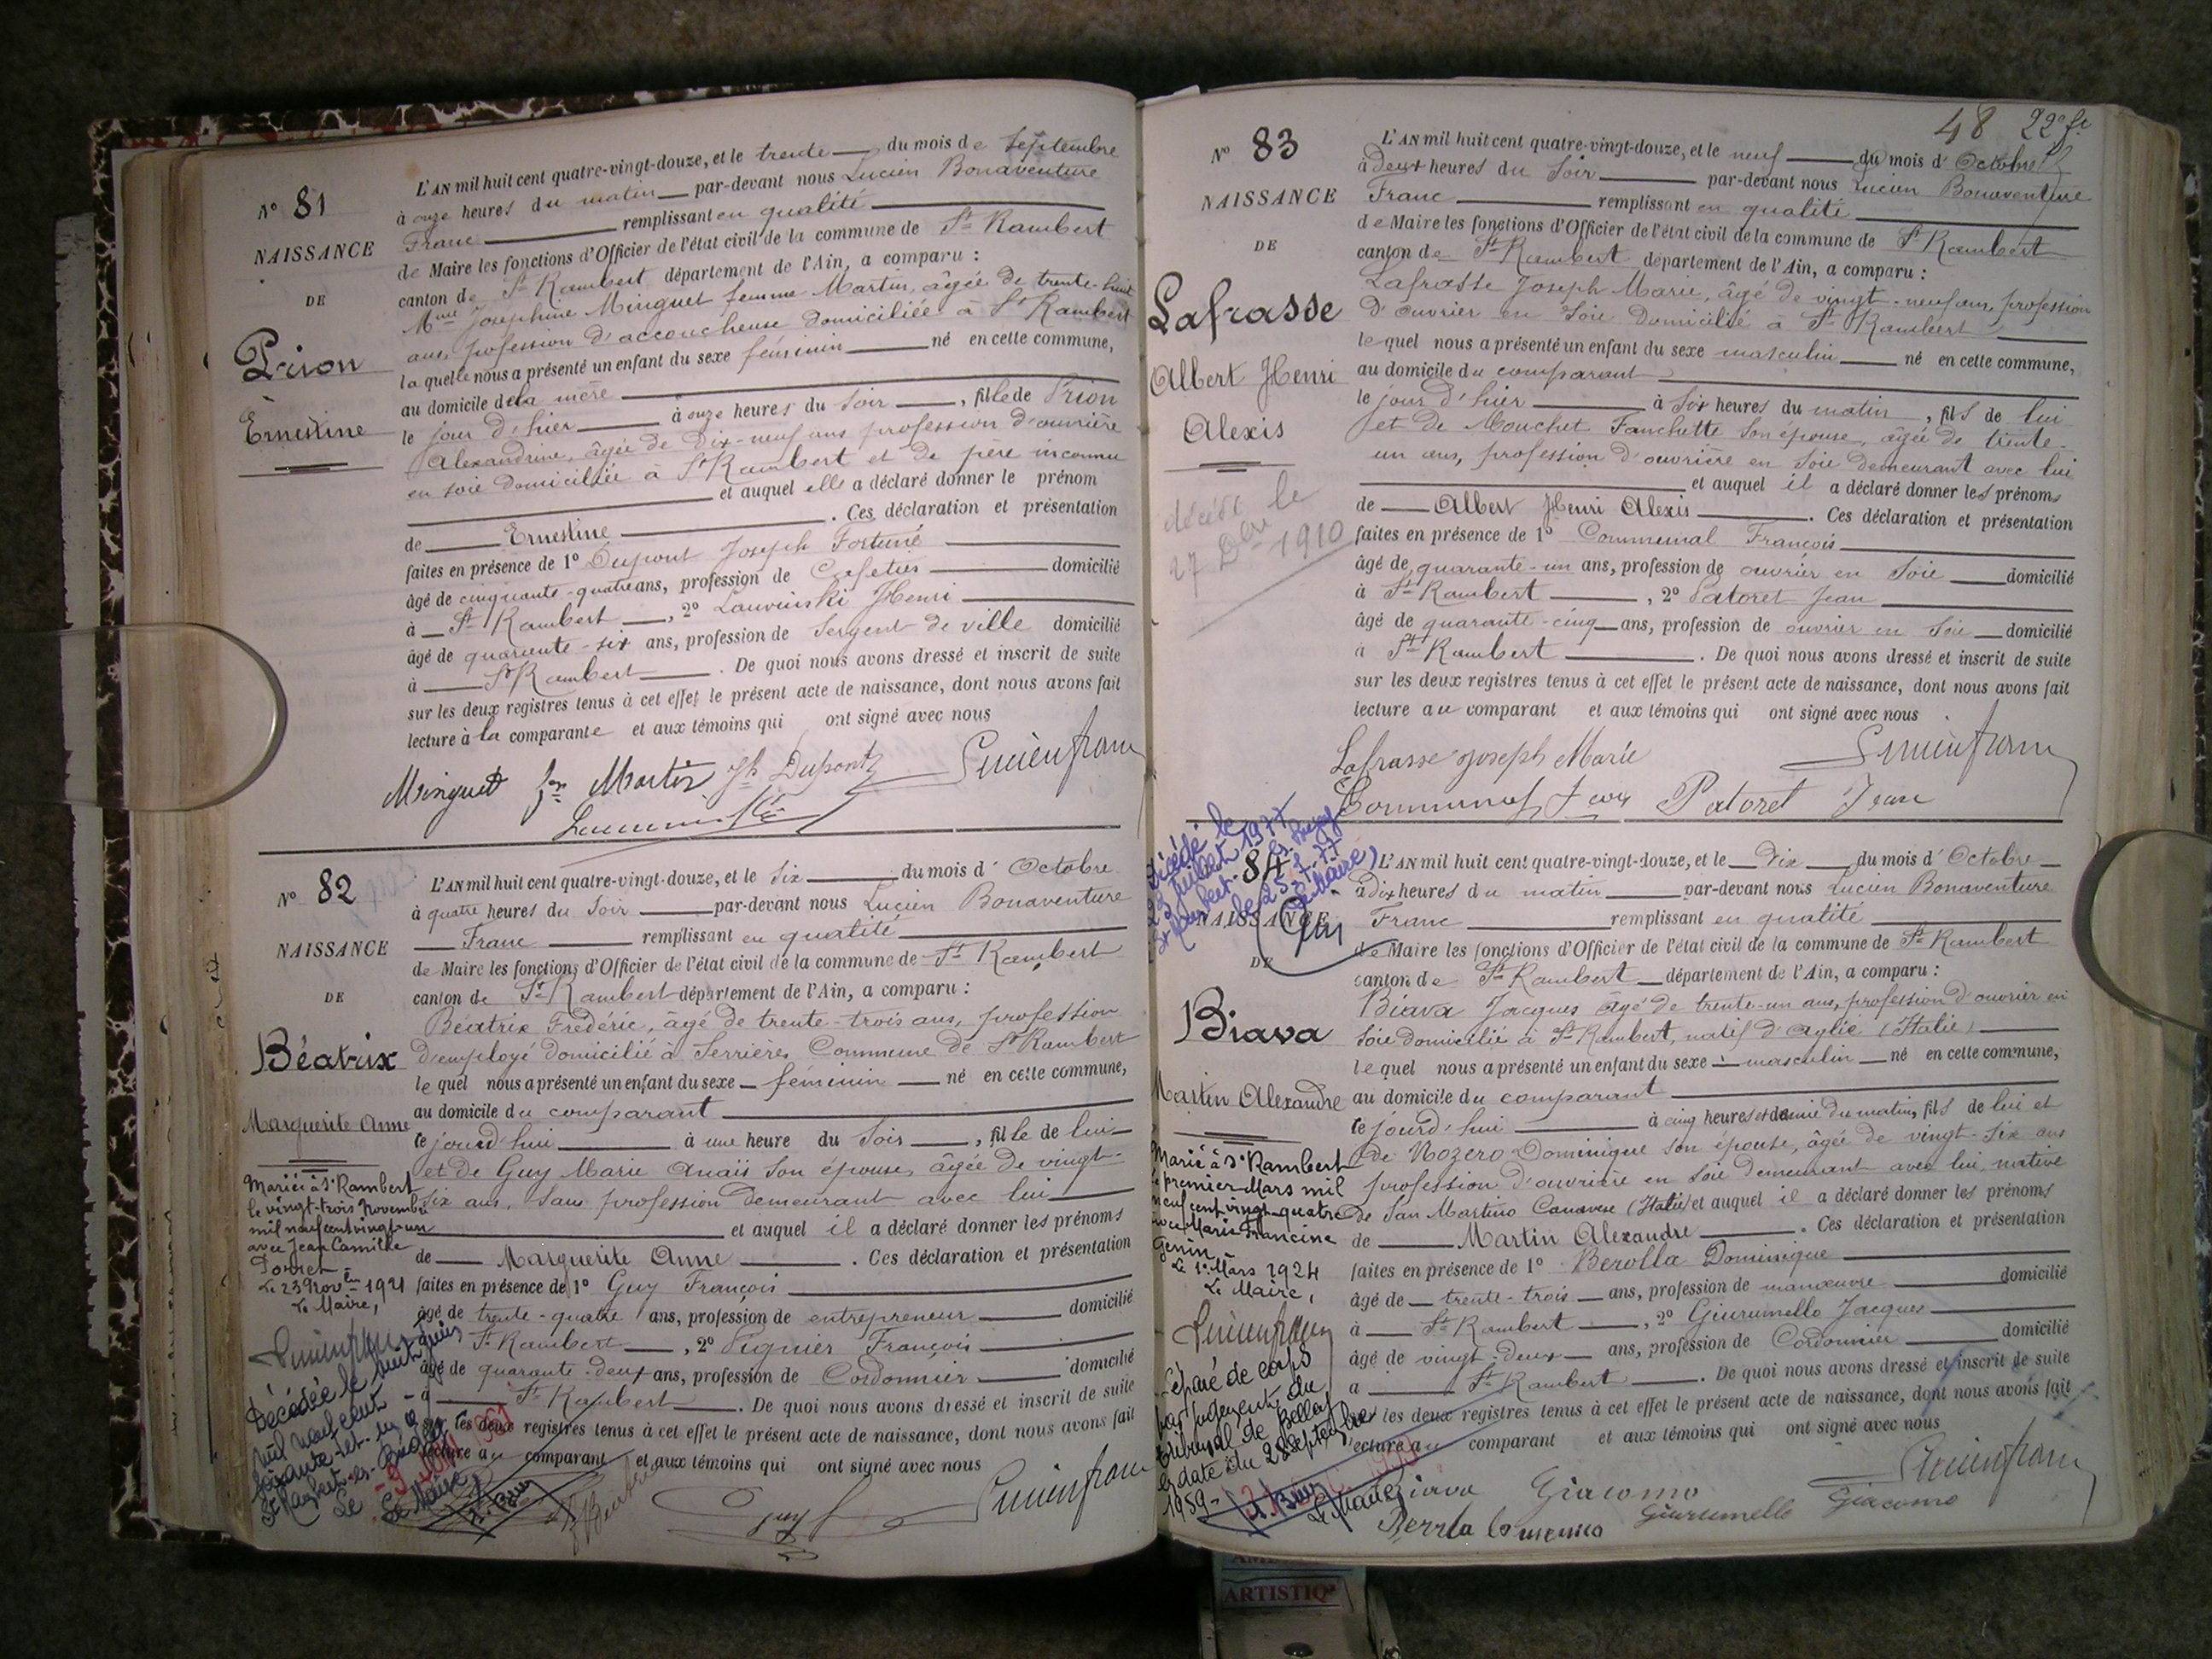 N° 81
NAISSANCE
DE
Prion
Ernestine
L'AN mil huit cent quatre-vingt-douze, et le trente du mois de Septembre
à onze heures du matin par-devant nous Lucien Bonaventure
Franc remplissant en qualité
de Maire les fonctions d'Officier de l'état civil de la commune de St Rambert
canton de St Rambert département de l'Ain, a comparu :
Mme Joséphine Minguet femme Martin, âgée de trente-huit
ans, profession d'accoucheuse domiciliée à St Rambert
la quelle nous a présenté un enfant du sexe féminin né en cette commune,
au domicile de la mère
le jour d'hier à onze heures du soir, fille de Prion
Alexandrine, âgée de Dix-neuf ans profession d'ouvrière
en soie domiciliée à St Rambert et de père inconnu
et auquel elle a déclaré donner le prénom
de Ernestine. Ces déclaration et présentation
faites en présence de 1° Dupont Joseph Fortuné
âgé de cinquante-quatre ans, profession de Cafetier domicilié
à St Rambert, 2° Henri
âgé de quarante-six ans, profession de Sergent de ville domicilié
à St Rambert. De quoi nous avons dressé et inscrit de suite
sur les deux registres tenus à cet effet le présent acte de naissance, dont nous avons fait
lecture à la comparante et aux témoins qui ont signé avec nous
Minguet fme Martin Jh Dupont Lucien franc
N° 82
NAISSANCE
DE
Béatrix
Marguerite Anne
Mariée à St Rambert
le vingt-trois Novembre
mil neuf cent vingt-un
avec Jean Camille
Le 23 Novbre 1921
Le Maire,
Lucien franc
Décédée le huit juin
mil neuf cent
soixante-et-un à
St Rambert-en-Bugey
Le -9 1961
Le Maire,
L'AN mil huit cent quatre-vingt-douze, et le six du mois d'Octobre
à quatre heures du soir par-devant nous Lucien Bonaventure
Franc remplissant en qualité
de Maire les fonctions d'Officier de l'état civil de la commune de St Rambert
canton de St Rambert département de l'Ain, a comparu :
Béatrix Frédéric, âgé de trente-trois ans, profession
d'employé domicilié à Serrières Commune de St Rambert
le quel nous a présenté un enfant du sexe féminin né en cette commune,
au domicile du comparant
le jourd'hui à une heure du soir, fille de lui
et de Guy Marie Anaïs son épouse, âgée de vingt-
six ans, sans profession demeurant avec lui
et auquel il a déclaré donner les prénoms
de Marguerite Anne. Ces déclaration et présentation
faites en présence de 1° Guy François
âgé de trente-quatre ans, profession de entrepreneur domicilié
à St Rambert, 2° François
âgé de quarante-deux ans, profession de Cordonnier domicilié
à St Rambert. De quoi nous avons dressé et inscrit de suite
sur les deux registres tenus à cet effet le présent acte de naissance, dont nous avons fait
lecture au comparant et aux témoins qui ont signé avec nous
Guy f Lucien franc
48 22e ft
N° 83
NAISSANCE
DE
Lafrasse
Albert Henri
Alexis
décédé le
27 Dbre 1910
L'AN mil huit cent quatre-vingt-douze, et le neuf du mois d'Octobre
à deux heures du soir par-devant nous Lucien Bonaventure
Franc remplissant en qualité
de Maire les fonctions d'Officier de l'état civil de la commune de St Rambert
canton de St Rambert département de l'Ain, a comparu :
Lafrasse Joseph Marie, âgé de vingt-neuf ans, profession
d'ouvrier en soie domicilié à St Rambert
le quel nous a présenté un enfant du sexe masculin né en cette commune,
au domicile du comparant
le jour d'hier à six heures du matin, fils de lui
et de Mouchet Fanchette son épouse, âgée de trente-
un ans, profession d'ouvrière en soie demeurant avec lui
et auquel il a déclaré donner les prénoms
de Albert Henri Alexis. Ces déclaration et présentation
faites en présence de 1° Communal François
âgé de quarante-un ans, profession de ouvrier en soie domicilié
à St Rambert, 2° Patoret Jean
âgé de quarante-cinq ans, profession de ouvrier en soie domicilié
à St Rambert. De quoi nous avons dressé et inscrit de suite
sur les deux registres tenus à cet effet le présent acte de naissance, dont nous avons fait
lecture au comparant et aux témoins qui ont signé avec nous
Lafrasse Joseph Marie Lucien franc
Communal Patoret Jean
Décédé le
23 juillet 1977
St Rambert en Bugey
le 25.7.77
84
NAISSANCE
DE
Biava
Martin Alexandre
Marié à St Rambert
le premier Mars mil
neuf cent vingt-quatre
avec Marie Francine
Genin
Le 1er Mars 1924
Le Maire,
Lucien franc
Séparé de corps
par jugement du
tribunal de Belley
en date du 28 septembre
1959
Le Maire,
L'AN mil huit cent quatre-vingt-douze, et le Dix du mois d'Octobre
à dix heures du matin par-devant nous Lucien Bonaventure
Franc remplissant en qualité
de Maire les fonctions d'Officier de l'état civil de la commune de St Rambert
canton de St Rambert département de l'Ain, a comparu :
Biava Jacques âgé de trente-un ans, profession d'ouvrier en
soie domicilié à St Rambert, natif d'Aglié (Italie)
le quel nous a présenté un enfant du sexe masculin né en cette commune,
au domicile du comparant
le jourd'hui à cinq heures et demie du matin, fils de lui et
de Nozero Dominique son épouse, âgée de vingt-six ans
profession d'ouvrière en soie demeurant avec lui, native
de San Martino Canavese (Italie) et auquel il a déclaré donner les prénoms
de Martin Alexandre. Ces déclaration et présentation
faites en présence de 1° Berolla Dominique
âgé de trente-trois ans, profession de manœuvre domicilié
à St Rambert, 2° Giurumello Jacques
âgé de vingt-deux ans, profession de Cordonnier domicilié
à St Rambert. De quoi nous avons dressé et inscrit de suite
sur les deux registres tenus à cet effet le présent acte de naissance, dont nous avons fait
lecture au comparant et aux témoins qui ont signé avec nous
Biava Giacomo Lucien franc
Giurumello Giacomo
ARTISTIQ